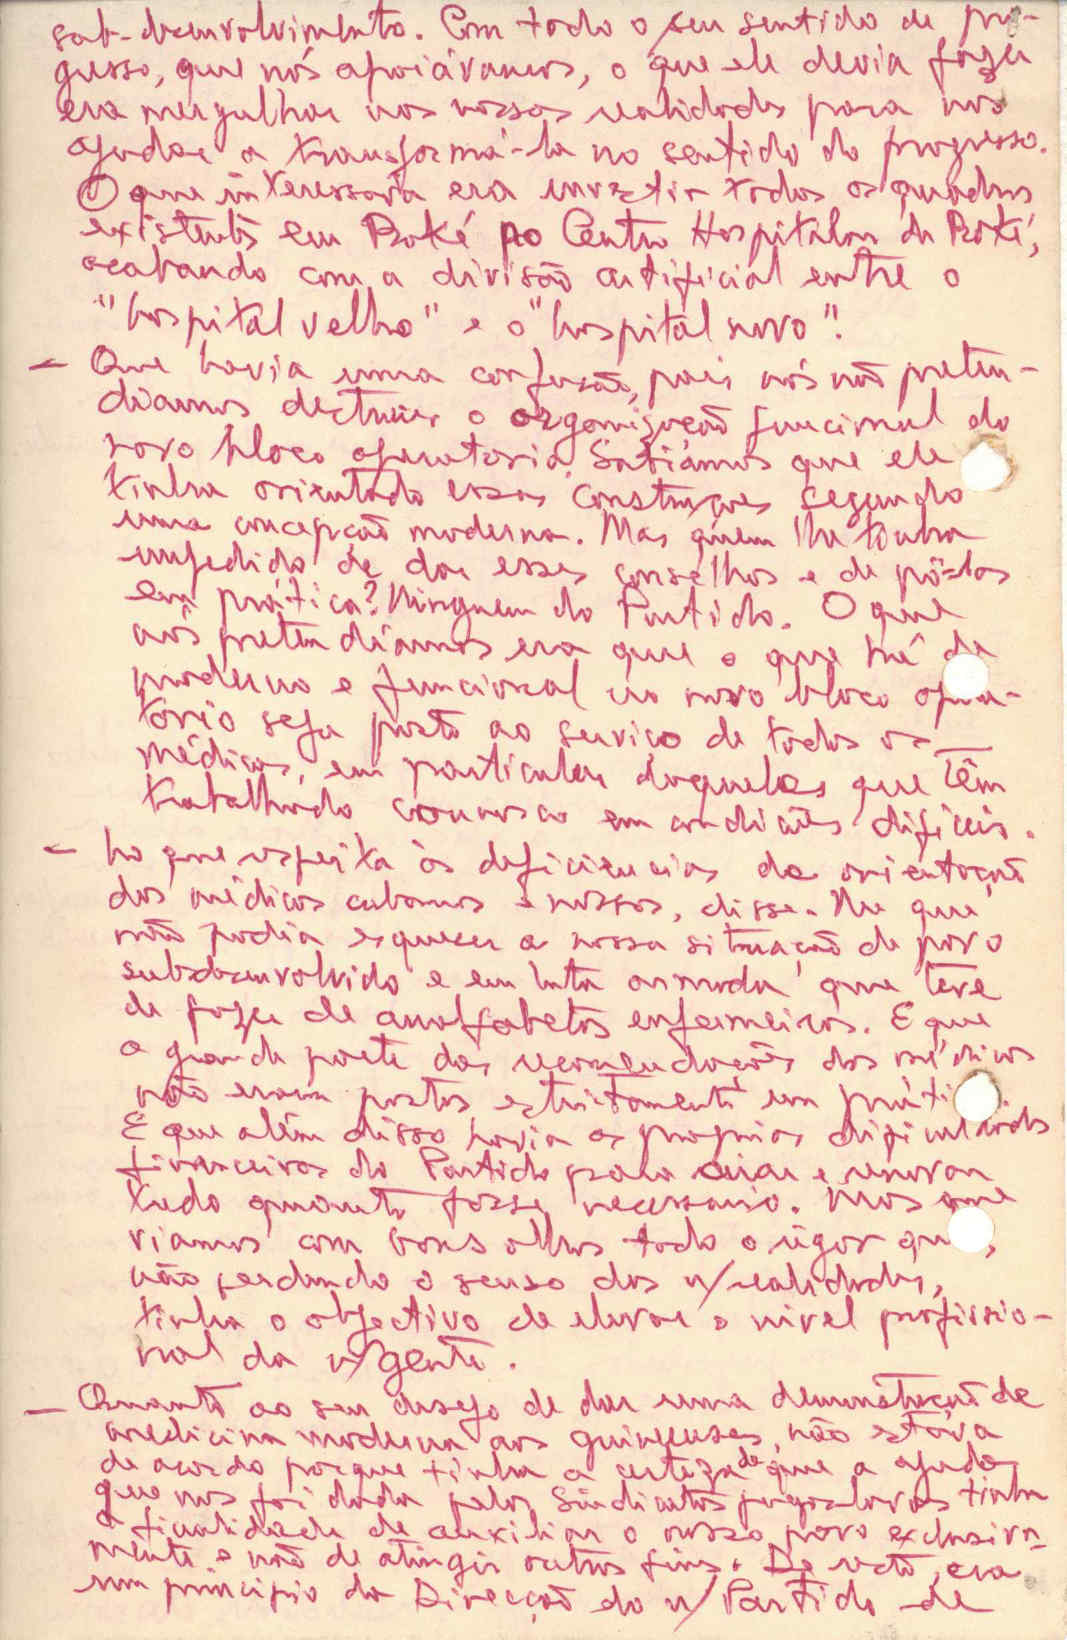 sub-desenvolvimento. Com todo o seu sentido de pro-
gresso, que nós apoiávamos, o que ele devia fazer
era mergulhar nas nossas realidades para nos
ajudar a transformá-la no sentido do progresso.
O que interessava era investir todos os quadros
existentes em Boké no Centro Hospitalar de Boké,
acabando com a divisão artificial entre o
"hospital velho" e o "hospital novo".
— Que havia uma confusão, pois nós não preten-
díamos destruir a organização funcional do
novo bloco operatório. Sabíamos que ele
tinha orientado essas construções segundo
uma concepção moderna. Mas quem lhe tinha
impedido de dar esses conselhos e de pô-los
em prática? Ninguem do Partido. O que
nós pretendíamos era que o que há de
moderno e funcional no novo bloco opera-
tório seja posto ao serviço de todos os
médicos, em particular daqueles que têm
trabalhado connosco em condições difíceis.
— No que respeita às deficiencias de orientação
dos médicos cubanos e nossos, disse-lhe que
não podia esquecer a nossa situação de povo
subdesenvolvido e em luta armada, que teve
de fazer de analfabetos enfermeiros. E que
a grande parte das recomendações dos médicos
não eram postas estrictamente em
E que além disso havia as proprias dificuldades
financeiras do Partido para criar e renovar
tudo quanto fosse necessario. Mas que
víamos com bons olhos todo o rigor que,
não perdendo o senso das n/realidades,
tinha o objectivo de elevar o nivel profissio-
nal da n/gente.
— Quanto ao seu desejo de dar uma demonstração de
medicina moderna aos guineenses, não estava
de acordo porque tinha a certeza de que a ajuda
que nos foi dada pelos Sindicatos jugoslavos tinha
a finalidade de auxiliar o nosso povo exclusiva-
mente e não de atingir outros fins. De resto, era
um principio da Direcção do n/Partido de